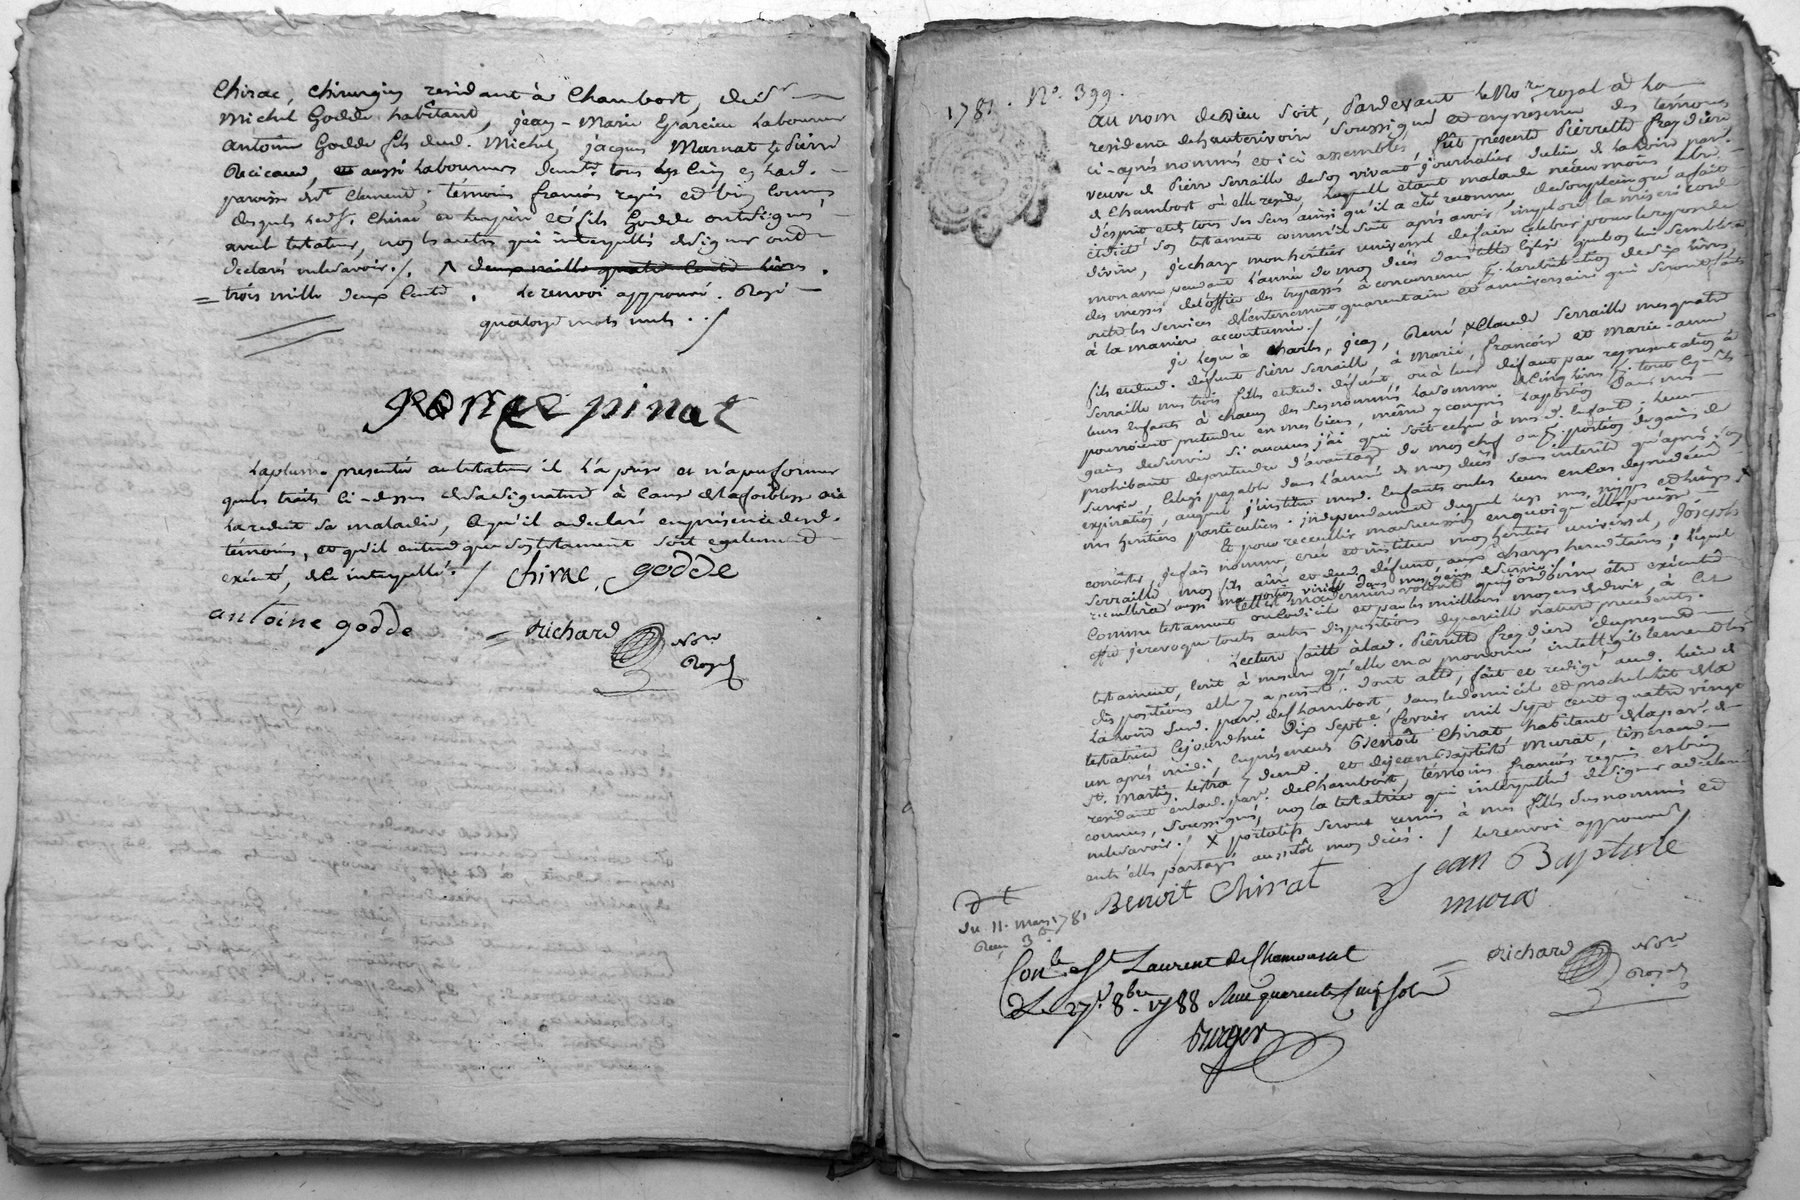 Chirac, chirurgien residant à Chambort, de sr
Michel Godde habitand, jean-Marie Eparcieu Laboureur
antoine Godde fils dud. Michel, jacques Marnat & Pierre
aussi Laboureurs demts. tous en lad.
paroisse de st. Clement, témoins francois requis et bien Connus
desquels led. sr. Chirac et les pere et fils Godde ont signé
avec le testateur, non les autres qui interpellés de signer ont
declaré ne le savoir ./. ~~deux mille quatre Cents Livres~~.
= trois mille deux Cents. Le renvoi approuvé. Rayé
quatorze mots nuls ./
pinat
La plume presentée au testateur il L'a prise et n'a pu former
que les traits Ci-dessus de sa signature à Cause de la foiblesse où
L'a reduit sa maladie, Ce qu'il a declaré en présence desd.
témoins, et qu'il entend que son testament soit egalement
exécuté, de Ce interpellé. /
Chirac, godde
antoine godde
= Richard Nore
Royal
1781. No. 399.
au nom de Dieu soit, Pardevant le Nore. royal à La
residence de hauterivoire soussigné et en presence des témoins
ci-après nommés et ici assemblés, fût présente Pierrette freydiere
veuve de Pierre Serraille de son vivant journalier du lieu de Lanoire par.
de Chambort où elle reside, Laquelle étant malade néanmoins libre
d'esprit et de tous ses sens ainsi qu'il a été reconnu, de son plein gré a fait
et dicté son testament comm'il suit après avoir imploré la misericorde
divine, je charge mon héritier universel de faire celebrer pour le repos de
mon ame pendant L'année de mon decès dans telle Eglise que bon lui semblera
des messes de L'office des trepassés à concurrence de La retribution de six Livres,
outre les services de L'enterrement, quarantain et anniversaire qui seront faits
à la maniere accoutumée. /
je Legue à Charles, jean, René, & Claude Serraille mes quatre
fils et dud. défunt Pierre Serraille, à Marie, francoise et Marie-anne
Serraille mes trois filles et dud. défunt, ou à leur défaut par representation à
leurs Enfants à chacun des susnommés La somme de Cinq Livres pr. tout Ce qu'ils
pourroient pretendre en mes biens, même y compris La portion dans mes
gains de survie si aucuns j'ai qui soit echue à mes d. Enfants, Leur
prohibant de pretendre d'avantage de mon chef ou pr. portion de gains de
survie, Lesd. legs payable dans L'année de mon decès sans interêts qu'après son
expiration, auquel j'institue mesd. Enfants ou les leurs en Cas de predécès
mes héritiers particuliers. independament duquel legs mes nippes et Linges X
Et pour recueillir ma succession en quoi qu'elle puisse
consister, je fais nomme, crée et institue mon héritier universel, Joseph
Serraille, mon fils aîné et dud. défunt, aux charges hereditaires; Lequel
recueillira aussi ma portion virile dans mes gains de survie /
telle est ma derniere volonté que j'ordonne être exécutée
Comme testament ou Codicile et par les meilleurs moyens de droit, à Cet
effet je revoque toutes autres dispositions de pareille nature precedentes.
Lecture faite à lad. Pierrette freydiere du present
testament, écrit à mesure qu'elle en a prononcé intelligiblement les
dispositions elle y a persisté. dont acte, fait et redigé aud. Lieu de
Lanoire susd. par. de Chambort, dans le domicile et proche le lit de La
testatrice Cejourdhui Dix sept e. fevrier mil sept cent quatre vingt
un après midi, En présence de Benoît Chirat, habitant de la par. de
St. Martin Lestra y demt. et de jean Baptiste Murat, tisserand
residant en lad. par. de Chambort, témoins francois requis et bien
connus, soussignés, non la testatrice qui interpellée de signer a declaré
ne le savoir ./ X portatifs seront remis à mes filles susnommées et
entr'elles partagés aussitôt mon décès. / Le renvoi approuvé /
Benoit Chirat
Jean Baptiste
mura
Du 11. Mars 1781
Reçu 3
Conle. st Laurent de Chamousat
Le 27. 8bre 1788 Reçu quarente Cinq sols
Burger
= Richard Nore
Royal